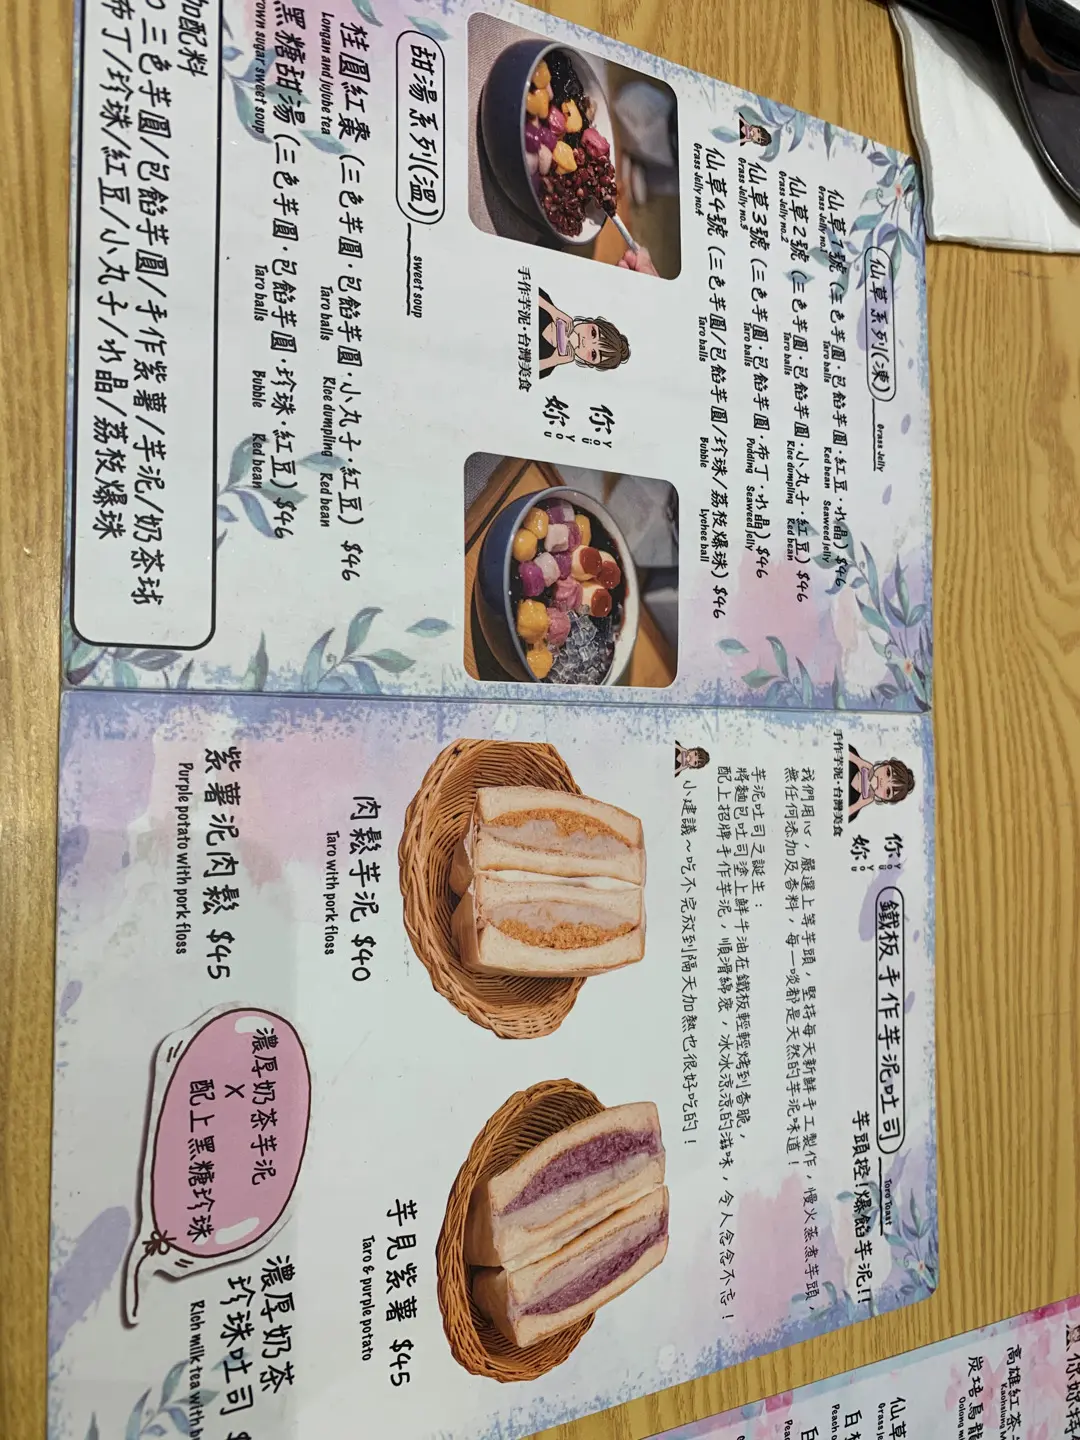 仙草系列(凍) Grass Jelly
仙草1號 (三色芋圓·包餡芋圓·紅豆·水晶) $46
Grass Jelly no.1 Taro balls Red bean Seaweed jelly
仙草2號 (三色芋圓·包餡芋圓·小丸子·紅豆) $46
Grass Jelly no.2 Taro balls Rice dumpling Red bean
仙草3號 (三色芋圓·包餡芋圓·布丁·水晶) $46
Grass Jelly no.3 Taro balls Pudding Seaweed jelly
仙草4號 (三色芋圓/包餡芋圓/珍珠/荔枝爆珠) $46
Grass Jelly no.4 Taro balls Bubble Lychee ball
你妳
YOU YOU
手作芋泥·台灣美食
甜湯系列(溫) sweet soup
桂圓紅棗 (三色芋圓·包餡芋圓·小丸子·紅豆) $46
Longan and jujube tea Taro balls Rice dumpling Red bean
黑糖甜湯 (三色芋圓·包餡芋圓·珍珠·紅豆) $46
rown sugar sweet soup Taro balls Bubble Red bean
加配料
三色芋圓/包餡芋圓/手作紫薯/芋泥/奶茶球
布丁/珍珠/紅豆/小丸子/水晶/荔枝爆珠
手作芋泥·台灣美食
你妳
YOU YOU
鐵板手作芋泥吐司 Toro Toast
芋頭控!爆餡芋泥!!
我們用心，嚴選上等芋頭，堅持每天新鮮手工製作，慢火蒸煮芋頭，
無任何添加及香料，每一啖都是天然的芋泥味道！
芋泥吐司之誕生：
將麵包吐司塗上鮮牛油在鐵板輕輕烤到香脆，
配上招牌手作芋泥，順滑綿密，冰冰涼涼的滋味，令人念念不忘！
小建議～吃不完放到隔天加熱也很好吃的！
肉鬆芋泥 $40
Taro with pork floss
芋見紫薯 $45
Taro & purple potato
紫薯泥肉鬆 $45
Purple potato with pork floss
濃厚奶茶芋泥
X
配上黑糖珍珠
濃厚奶茶
珍珠吐司 $
Rich milk tea with b
你妳特
高雄紅茶
Kaohsiung
炭培烏龍
Oolong mi
仙草
Grass Je
白桃
Peach o
白
Peac